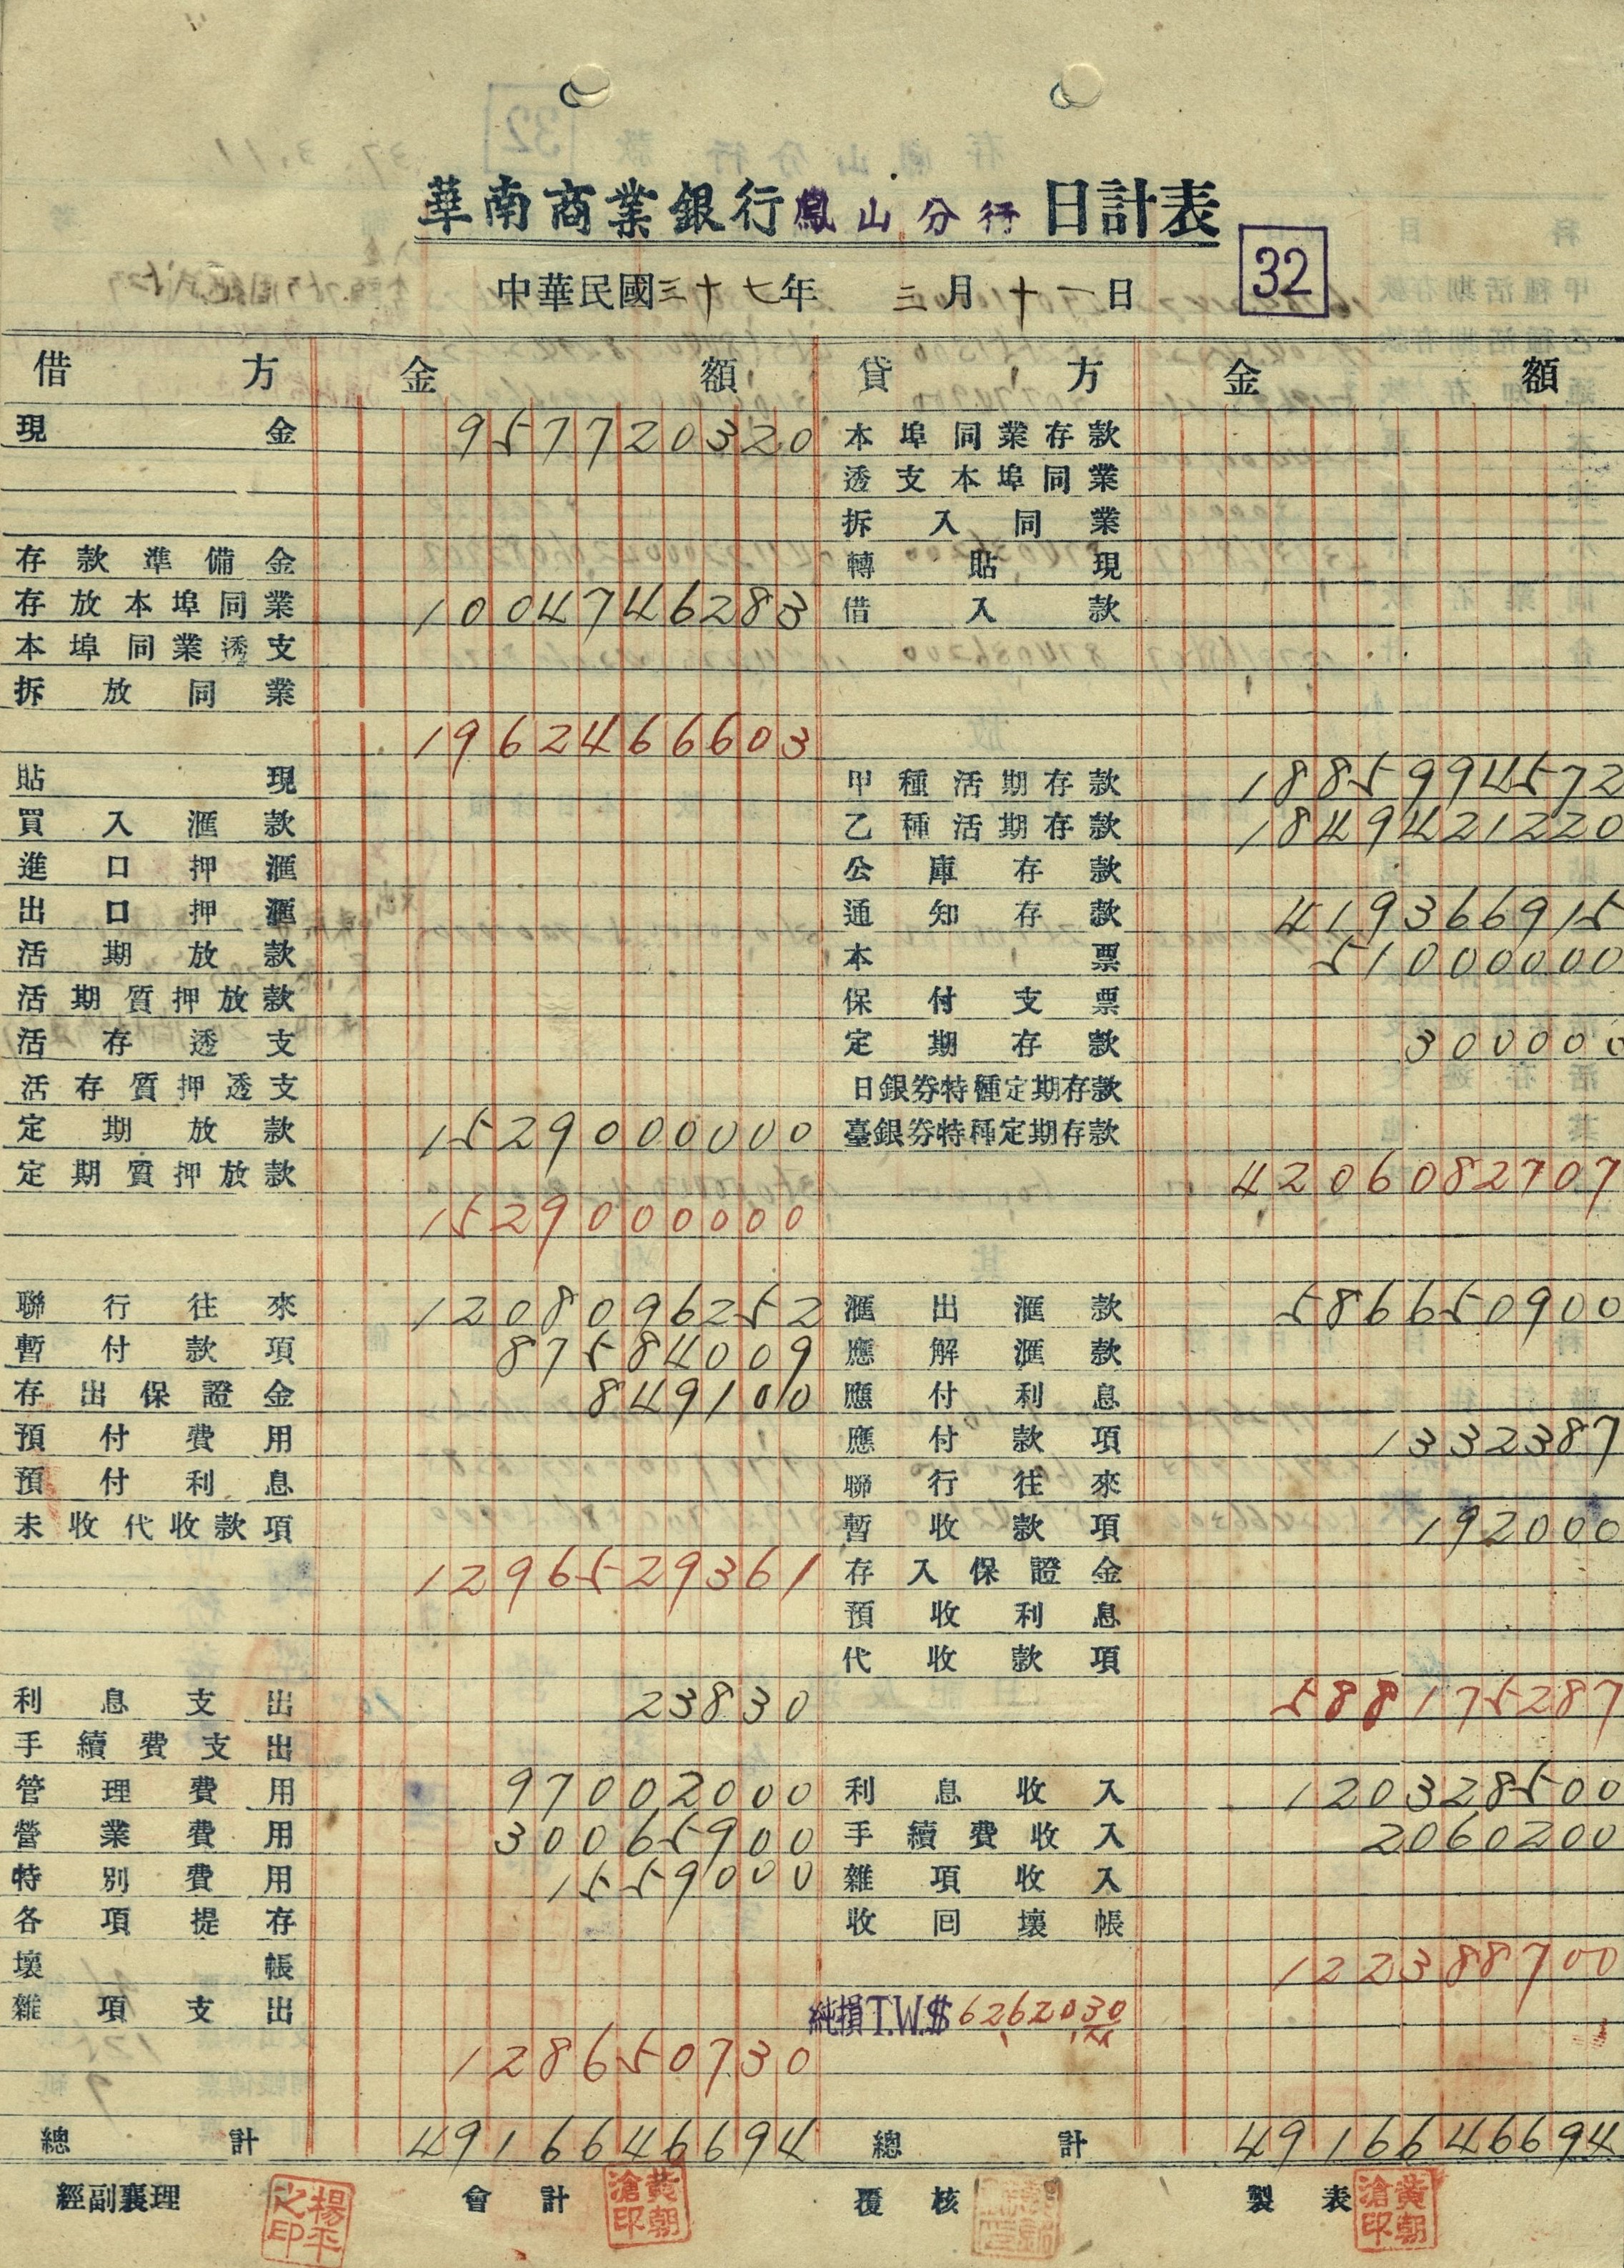 華南商業銀行鳳山分行日計表
中華民國三十七年 三月十一日 32
借方 金額 貸方 金額
現金 957720320 本埠同業存款
透支本埠同業
拆入同業
存款準備金 轉貼現
存放本埠同業 1004746283 借入款
本埠同業透支
拆放同業
1962466603
貼現 甲種活期存款 1885994572
買入滙款 乙種活期存款 1849421220
進口押滙 公庫存款
出口押滙 通知存款 419366915
活期放款 本票 51000000
活期質押放款 保付支票
活存透支 定期存款 300000
活存質押透支 日銀券特種定期存款
定期放款 1529000000 臺銀券特種定期存款
定期質押放款 4206082707
1529000000
聯行往來 1208096252 滙出滙款 586650900
暫付款項 87584009 應解滙款
存出保證金 849100 應付利息
預付費用 應付款項 1332387
預付利息 聯行往來
未收代收款項 暫收款項 192000
1296529361 存入保證金
預收利息
代收款項
利息支出 23830 588175287
手續費支出
管理費用 97002000 利息收入 120328500
營業費用 30065900 手續費收入 2060200
特別費用 1559000 雜項收入
各項提存 收回壞帳
壞帳 122388700
雜項支出 純損T.W.$ 6262030
128650730
總計 4916646694 總計 4916646694
經副襄理 楊平之印 會計 黃朝滄印 覆核 製表 黃朝滄印